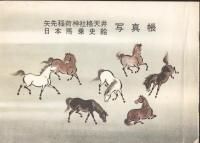 矢先稲荷神社格天井
日本馬乗史絵
写真帳